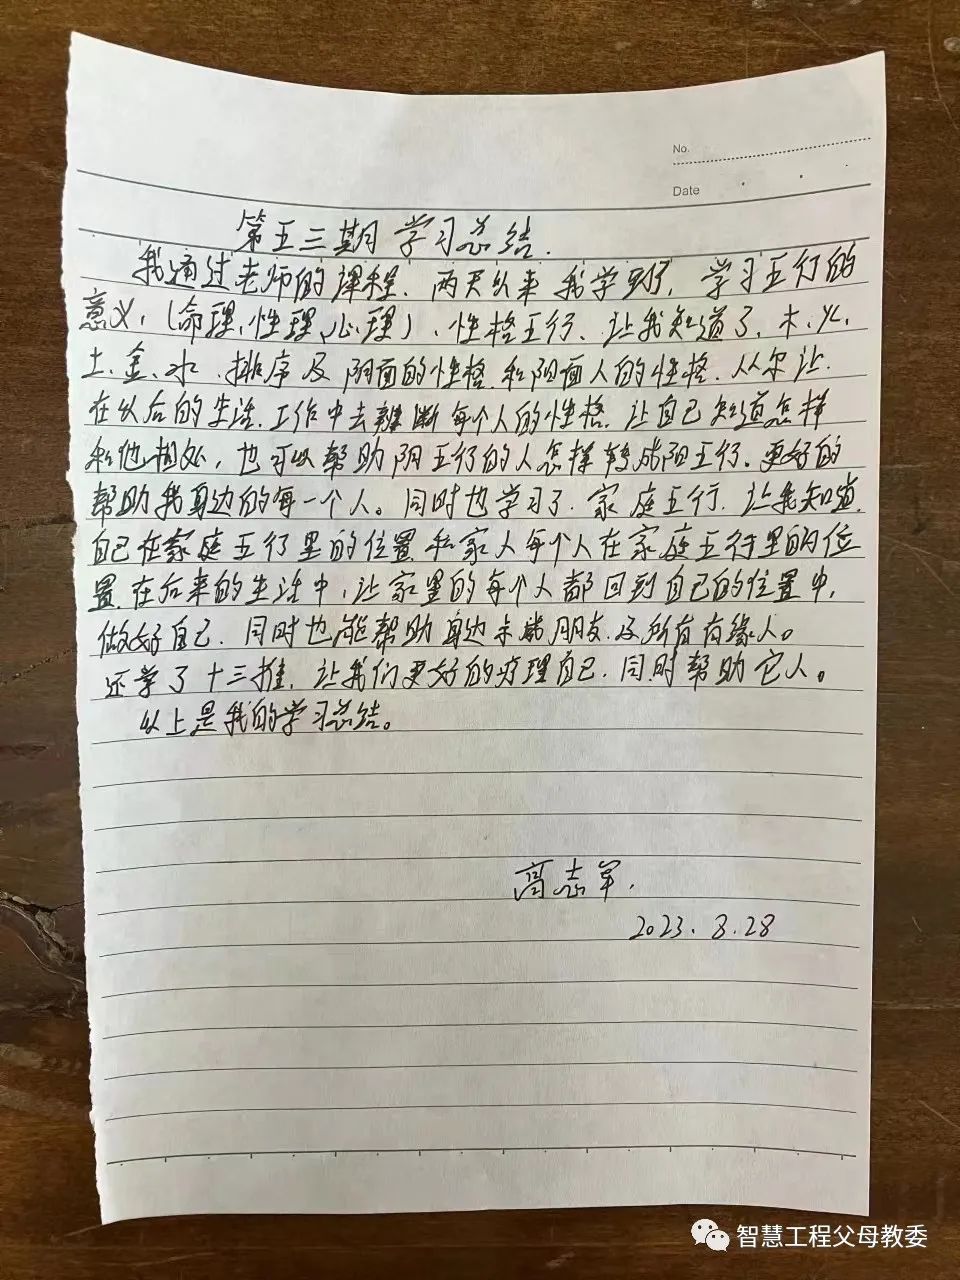 No.
Date
第五三期学习总结.
我通过老师的课程、两天以来我学到了,学习五行的
意义,(命理,性理,心理)、性格五行、让我知道了、木、火、
土、金、水、排序及阴面的性格和阳面人的性格、从尔让、
在以后的生活.工作中去辨断每个人的性格、让自己知道怎样
和他相处,也可以帮助阴五行的人怎样转成阳五行、更好的
帮助我身边的每一个人。同时也学习了、家庭五行、让我知道
自己在家庭五行里的位置和家人每个人在家庭五行里的位
置、在后来的生活中,让家里的每个人都回到自己的位置中,
做好自己、同时也能帮助身边亲戚朋友及所有有缘人。
还学了十三推、让我们更好的疗理自己、同时帮助它人。
以上是我的学习总结。
高志军.
2023.8.28
智慧工程父母教委